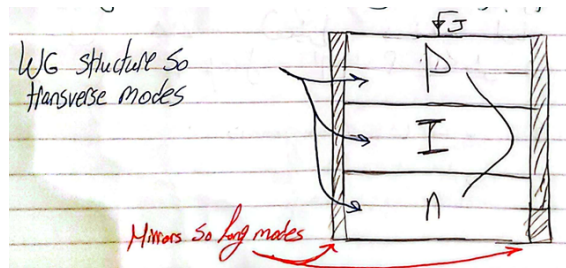 J
WG structure so
transverse modes
P
I
n
Mirrors so long modes